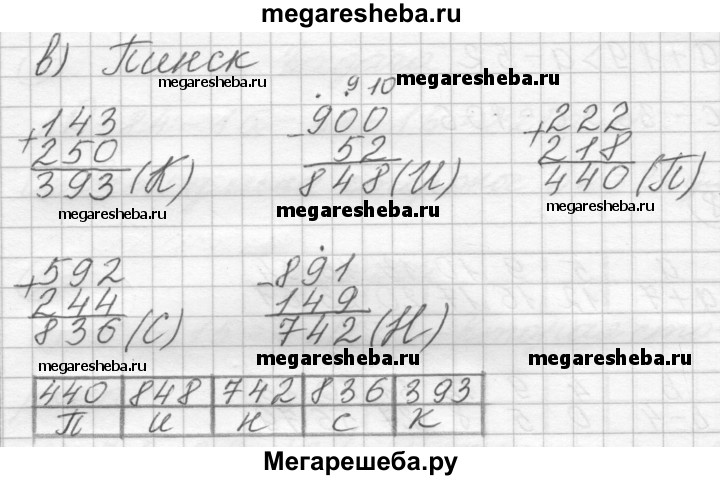 megaresheba.ru
в) Пинск
megaresheba.ru
9 10
megaresheba.ru
+ 143
250
393 (К)
- 900
52
848 (И)
+ 222
218
440 (П)
megaresheba.ru
megaresheba.ru
megaresheba.ru
+ 592
244
836 (С)
- 891
149
742 (Н)
megaresheba.ru
megaresheba.ru
megaresheba.ru
440 848 742 836 393
П И Н С К
Мегарешеба.ру